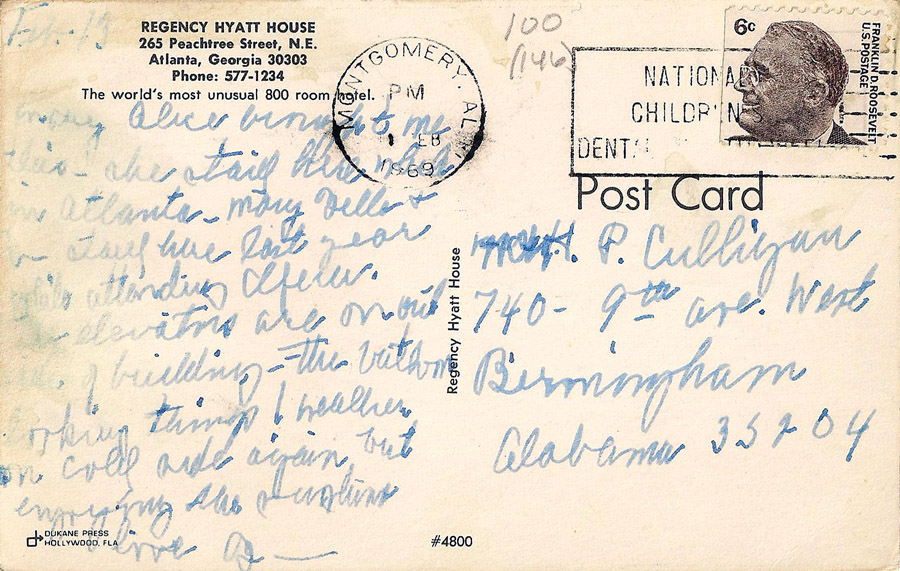 Feb-13
REGENCY HYATT HOUSE
265 Peachtree Street, N.E.
Atlanta, Georgia 30303
Phone: 577-1234
The world's most unusual 800 room hotel.
Alice brought me
this - she staid here
in Atlanta - Mary Belle &
staid here last year
while attending
elevators are on out
side of building - The
looking things! weather
on cold side again, but
enjoying the sunshine
Love
DUKANE PRESS
HOLLYWOOD, FLA
#4800
Regency Hyatt House
100
(146)
MONTGOMERY, AL
PM
FEB
1969
NATIONAL
CHILDREN'S
DENTAL
6c
FRANKLIN D. ROOSEVELT
U.S. POSTAGE
Post Card
P. Culligan
740 - 9th ave. West
Birmingham
Alabama 35204